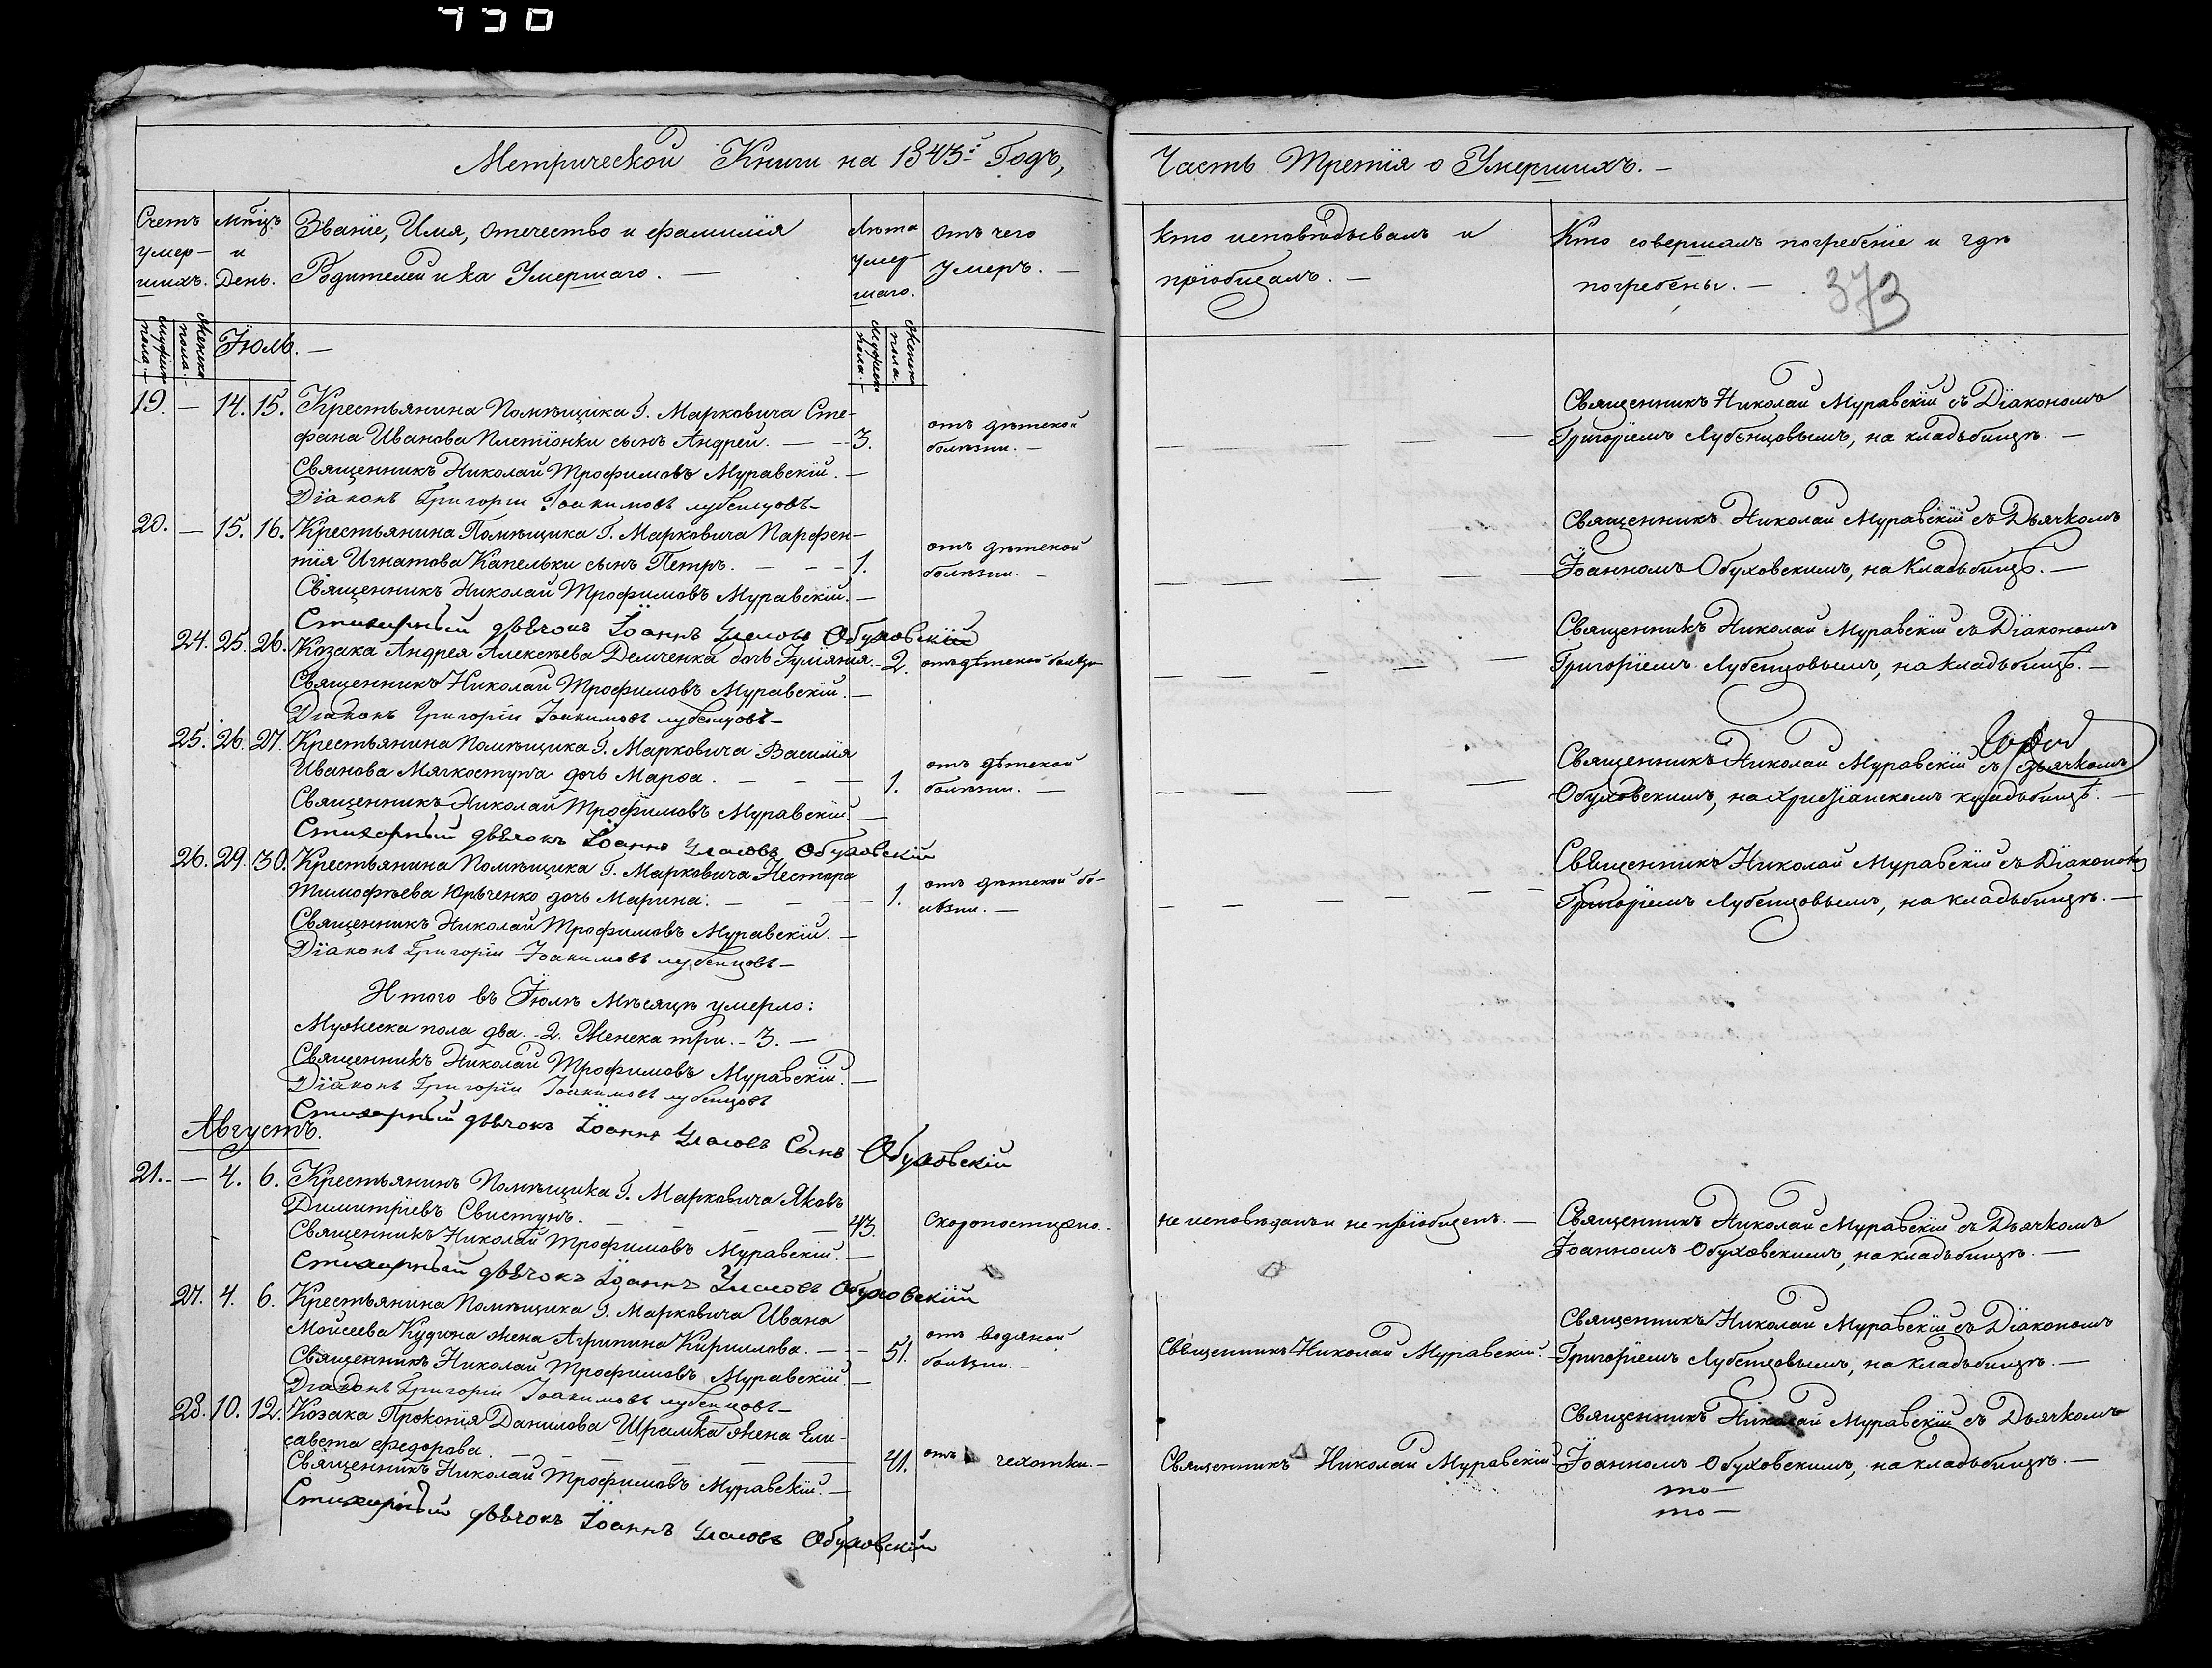 730
Метрической Книги на 1843й Годъ,
Часть Третія о Умершихъ. —
Счетъ умер-шихъ.
Мѣцъ и День.
Званіе, Имя, отечество и фамилія
Родителей и ка Умершаго. —
Лѣта умер-шаго.
Отъ чего умеръ. —
Кто исповѣдывалъ и пріобщалъ. —
Кто совершалъ погребеніе и гдѣ погребены. —
373
Мужеск пола. —
Женска пола. —
Іюль. —
Мужеск пола. —
Женска пола.
19. — 14. 15. Крестьянина Помѣщика Г. Марковича Сте-
фана Иванова Плетіонки сынъ Андрей. — — 3. отъ дѣтской болѣзни. —
Священникъ Николай Муравскій съ Діакономъ
Григоріемъ Лубенцовымъ, на кладьбищѣ. —
Священникъ Николай Трофимовъ Муравскій. —
Діаконъ Григорій Іоакимовъ лубенцовъ —
20. — 15. 16. Крестьянина Помѣщика Г. Марковича Парфен-
тія Игнатова Капельки сынъ Петръ. — — — 1. отъ дѣтской болѣзни. —
Священникъ Николай Муравскій съ Дьячкомъ
Іоанномъ Обуховскимъ, на Кладьбищѣ. —
Священникъ Николай Трофимовъ Муравскій. —
Стихарный дьячокъ Іоаннъ Власовъ Обуховскій
24. 25. 26. Козака Андрея Алексѣева Демченка дочь Іуліянія. — 2. отъ дѣтской болѣзн
Священникъ Николай Муравскій съ Діакономъ
Григоріемъ Лубенцовымъ, на кладьбищѣ. —
Священникъ Николай Трофимовъ Муравскій. —
Діаконъ Григорій Іоакимовъ лубенцовъ —
25. 26. 27. Крестьянина Помѣщика Г. Марковича Василія
Иванова Мягкоступа дочь Марѳа. — — — 1. отъ дѣтской болѣзни. —
Священникъ Николай Муравскій съ дьячкомъ
Обуховскимъ, на христіанскомъ кладьбищѣ. —
Священникъ Николай Трофимовъ Муравскій. —
Стихарный дьячокъ Іоаннъ Власовъ Обуховскій
26. 29. 30. Крестьянина Помѣщика Г. Марковича Нестора
Тимофѣева Юрьченко дочь Марина. — — — 1. отъ дѣтской бо-лѣзни. —
Священникъ Николай Муравскій съ Діакономъ
Григоріемъ Лубенцовымъ, на кладьбищѣ. —
Священникъ Николай Трофимовъ Муравскій. —
Діаконъ Григорій Іоакимовъ лубенцовъ —
Итого въ Іюлѣ Мѣсяцѣ умерло:
Мужеска пола два. — 2. Женска три. — 3. —
Священникъ Николай Трофимовъ Муравскій. —
Діаконъ Григорій Іоакимовъ лубенцовъ
Стихарный дьячокъ Іоаннъ Власовъ Сынъ Обуховскій
Августъ.
21. — 4. 6. Крестьянинъ Помѣщика Г. Марковича Яковъ
Димитріевъ Свистунъ. — — — 43. Скоропостижно. — не исповѣданъ и не пріобщенъ. —
Священникъ Николай Муравскій съ Дьячкомъ
Іоанномъ Обуховскимъ, на кладьбищѣ. —
Священникъ Николай Трофимовъ Муравскій. —
Стихарный дьячокъ Іоаннъ Власовъ Обуховскій
27. 4. 6. Крестьянина Помѣщика Г. Марковича Ивана
Моисеева Кудина жена Агрипина Кириллова. — — 51. отъ водяной болѣзни. — Священникъ Николай Муравскій. —
Священникъ Николай Муравскій съ Діакономъ
Григоріемъ Лубенцовымъ, на кладьбищѣ. —
Священникъ Николай Трофимовъ Муравскій. —
Діаконъ Григорій Іоакимовъ лубенцовъ —
28. 10. 12. Козака Прокопія Данилова Шрамка жена Ели-
савета федорова. — — — 41. отъ чехотки. — Священникъ Николай Муравскій —
Священникъ Николай Муравскій съ Дьячкомъ
Іоанномъ Обуховскимъ, на кладьбищѣ. —
Священникъ Николай Трофимовъ Муравскій. —
Стихарный дьячокъ Іоаннъ Власовъ Обуховскій
то —
то —